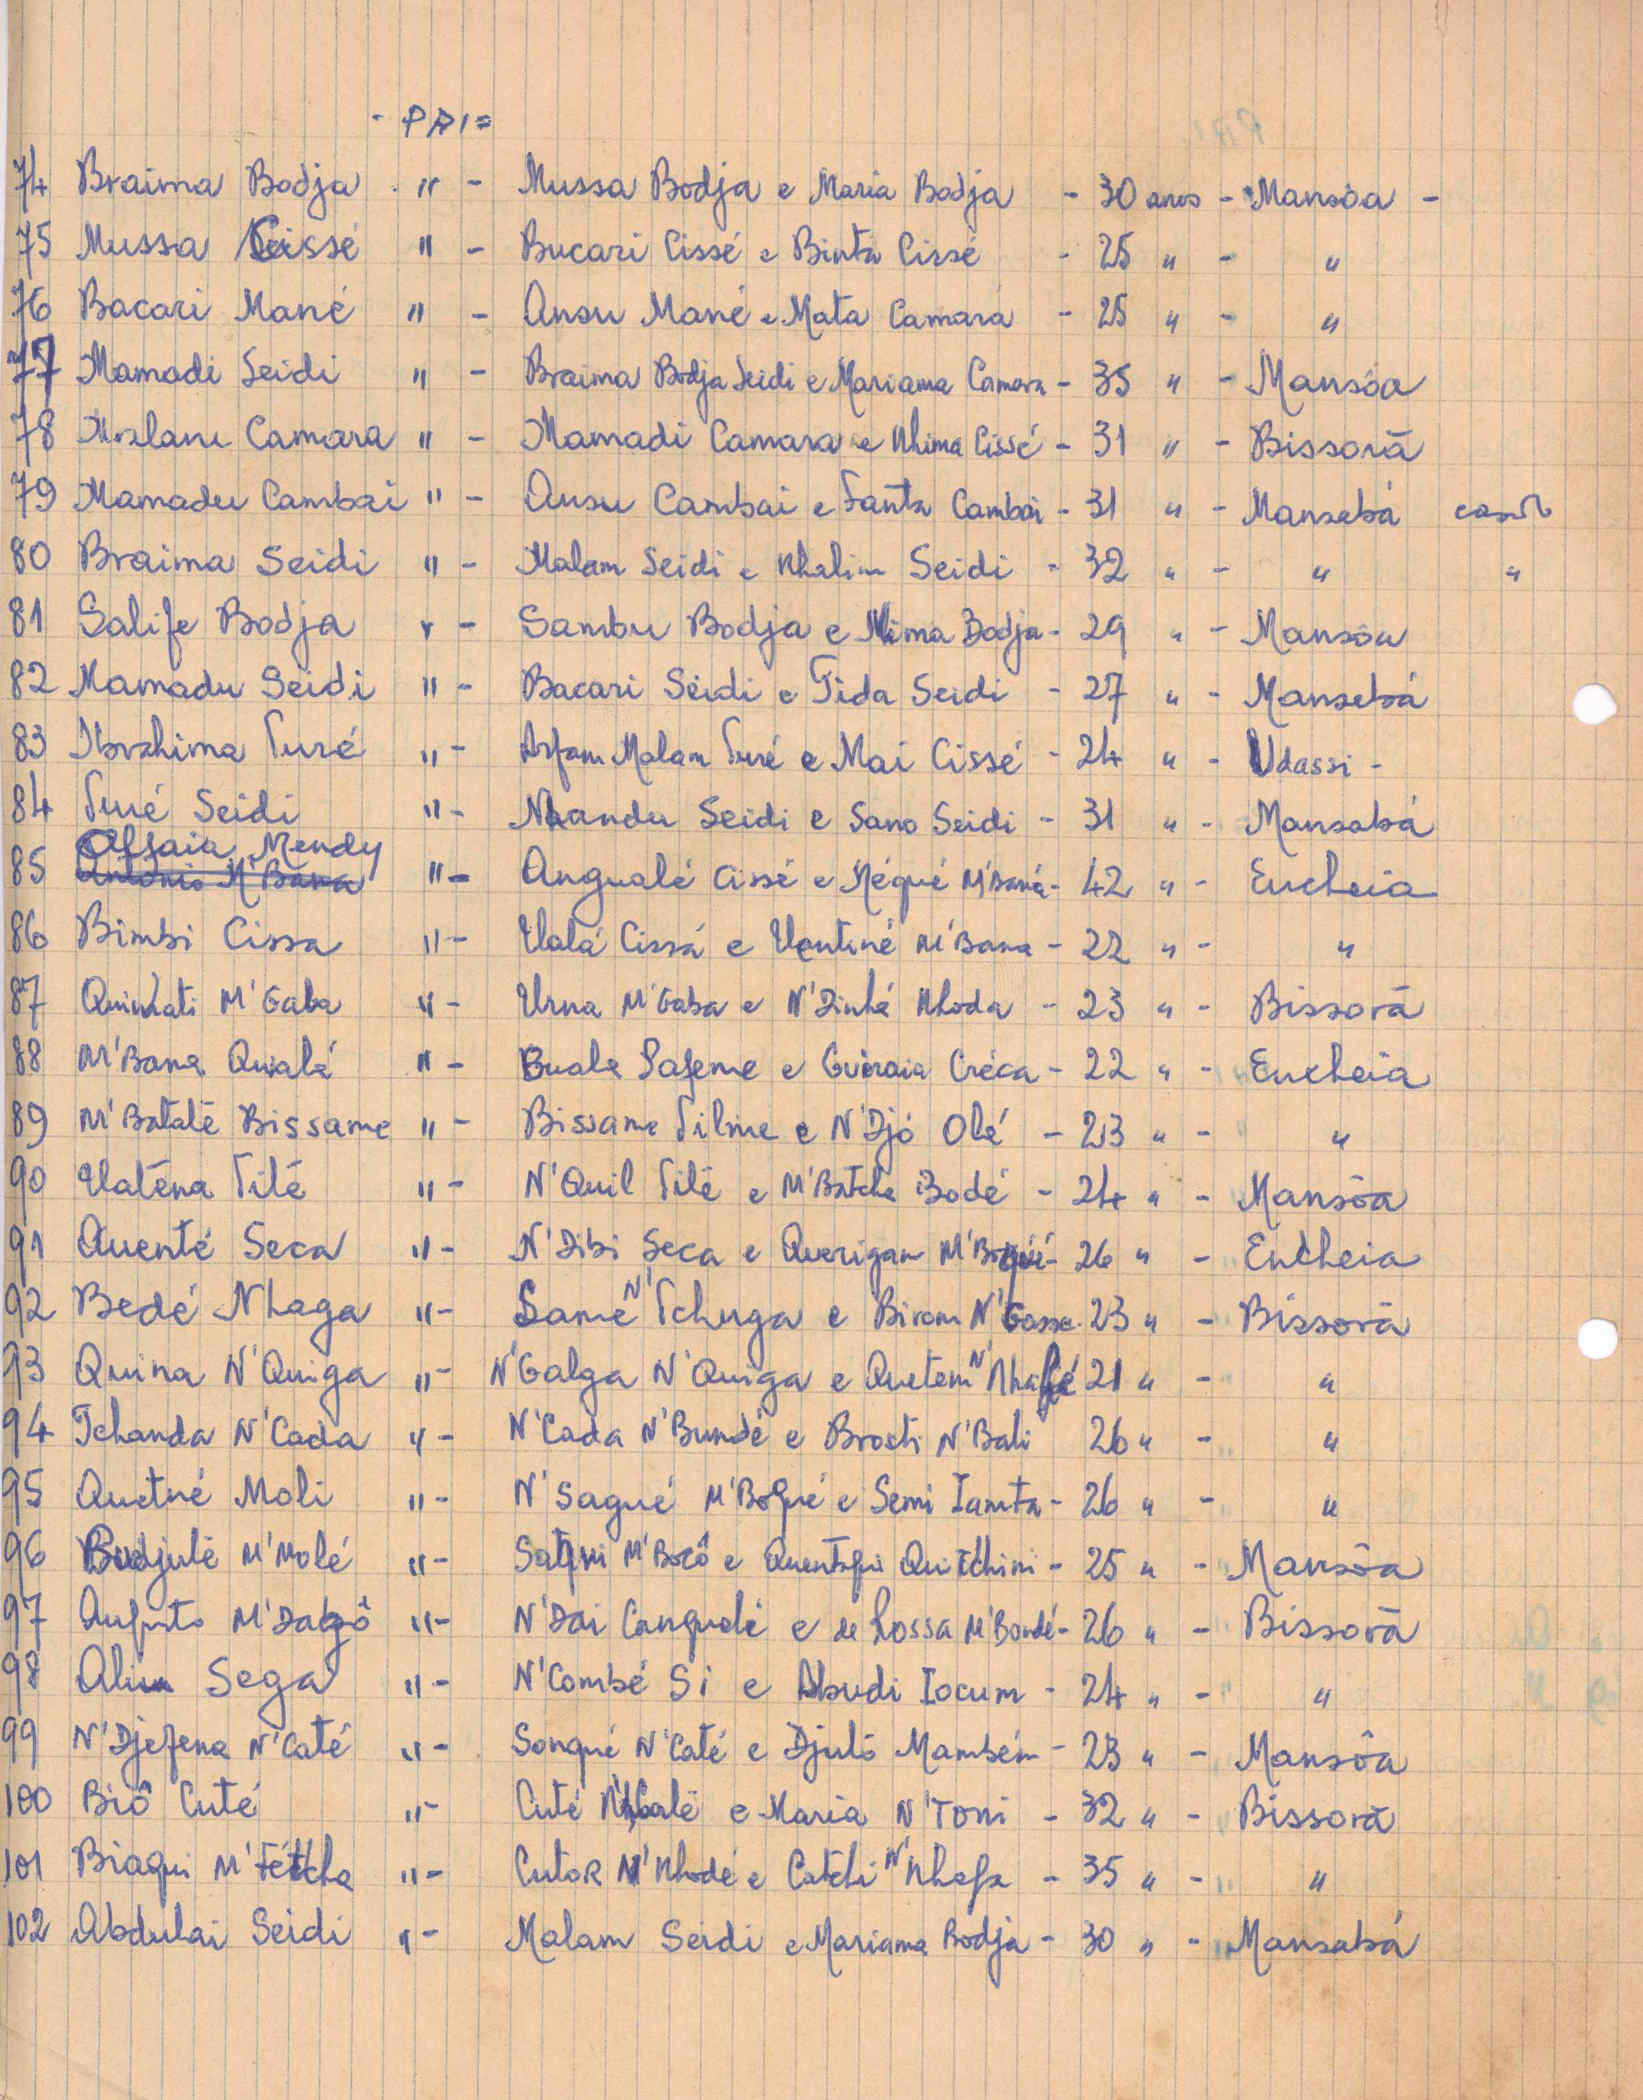 - PAI =
74 Braima Bodja . " - Mussa Bodja e Maria Bodja - 30 anos - Mansôa -
75 Mussa Seissé " - Bucari Cissé e Binta Cissé - 25 " - "
76 Bacari Mané " - Ansu Mané e Mata Camará - 25 " - "
77 Mamadi Seidi " - Braima Bodja Seidi e Mariama Camara - 35 " - Mansôa
78 Camara " - Mamadi Camara e Nhima Cissé - 31 " - Bissorã
79 Mamadu Cambai " - Ansu Cambai e Fanta Cambai - 31 " - Mansabá
80 Braima Seidi " - Malam Seidi e Nhalim Seidi - 32 " - " "
81 Salife Bodja " - Sambu Bodja e Nima Bodja - 29 " - Mansôa
82 Mamadu Seidi " - Bacari Seidi e Tida Seidi - 27 " - Mansabá
83 Ibrahima Turé " - Arfam Malam Turé e Mai Cissé - 24 " - Udassi -
84 Turé Seidi " - Nhandu Seidi e Sano Seidi - 31 " - Mansabá
Affaia Mendy
85 Antonio M'Bana " - Angualé Cissé e Néqué M'Bané - 42 " - Encheia
86 Bimbi Cissa " - Ualá Cissá e Uentiné M'Bana - 22 " - "
87 Quinhati M'Gaba " - Urna M'Gaba e N'Dinhá Nhoda - 23 " - Bissorã
88 M'Bana Qualá " - Buala Safeme e Guéraia Créca - 22 " - Encheia
89 M'Batalé Bissame " - Bissame Tilme e N'Djó Olé - 23 " - "
90 Ualéna Tilé " - N'Quil Tilé e M'Batcha Bodé - 24 " - Mansôa
91 Quenté Seca " - N'Dibi Seca e Querigam - 26 " - Encheia
92 Bedé Nhaga " - Samé N'Tchuga e Birom N'Gossa - 23 " - Bissorã
93 Quina N'Quiga " - N'Galga N'Quiga e Quetem N'Nhaffé 21 " - "
94 Tchanda N'Cada " - N'Cada N'Bundé e Brosti N'Bali 26 " - "
95 Quetné Moli " - N'Sagué M'Boqué e Semi Iamta - 26 " - "
96 Budjulé M'Molé " - Satqui M'Bocô e Quentaqui Quitchini - 25 " - Mansôa
97 Aufuto M'Dabô " - N'Dai Cangualé e de Lossa M'Bondé - 26 " - Bissorã
98 Aliu Sega " - N'Combé Si e Abudi Iocum - 24 " - "
99 N'Djefena N'Caté " - Songué N'Caté e Djuló Mambém - 23 " - Mansôa
100 Biô Cuté " - Cuté e Maria N'Toni - 32 " - Bissorã
101 Biaqui M'Fétcha " - Cutar N'Nhodé e Catchi N'Nhafa - 35 " - "
102 Abdulai Seidi " - Malam Seidi e Mariama Bodja - 30 " - Mansabá